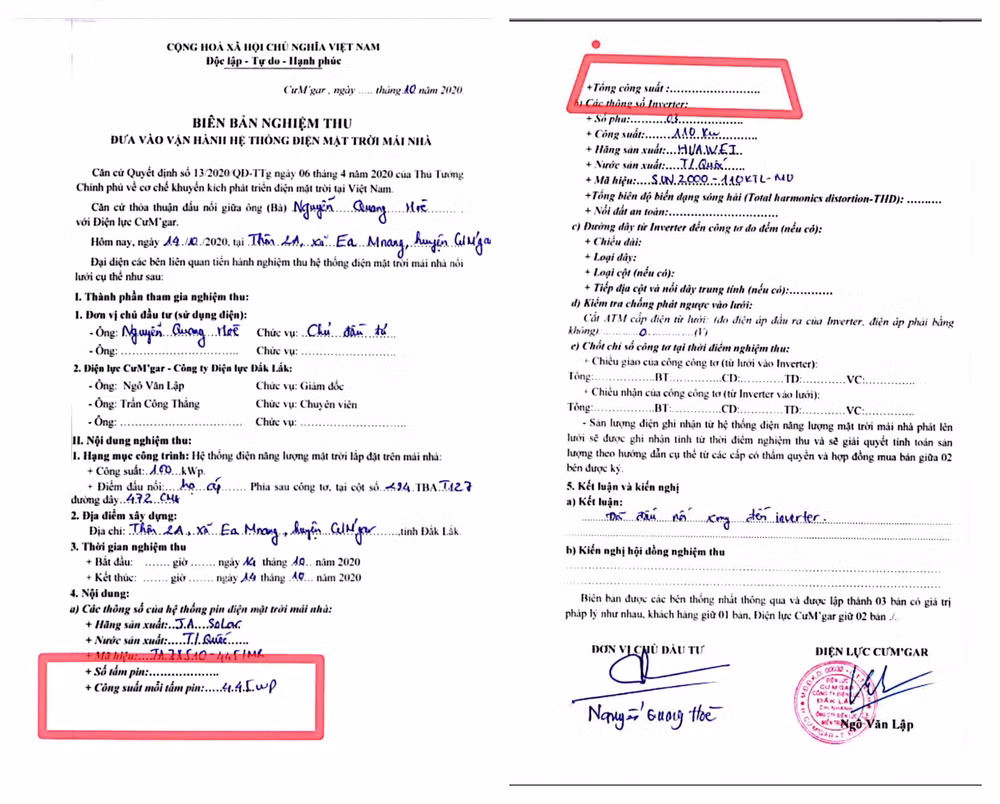 CỘNG HOÀ XÃ HỘI CHỦ NGHĨA VIỆT NAM
Độc lập - Tự do - Hạnh phúc
CưM'gar , ngày ..... tháng 10 năm 2020.
BIÊN BẢN NGHIỆM THU
ĐƯA VÀO VẬN HÀNH HỆ THỐNG ĐIỆN MẶT TRỜI MÁI NHÀ
Căn cứ Quyết định số 13/2020/QĐ-TTg ngày 06 tháng 4 năm 2020 của Thủ Tướng
Chính phủ về cơ chế khuyến kích phát triển điện mặt trời tại Việt Nam.
Căn cứ thỏa thuận đấu nối giữa ông (Bà) Nguyễn Quang Hoè
với Điện lực CưM'gar.
Hôm nay, ngày 14/10/2020, tại Thôn 2A, xã Ea Mnang, huyện CưM'gar
Đại diện các bên liên quan tiến hành nghiệm thu hệ thống điện mặt trời mái nhà nối
lưới cụ thể như sau:
I. Thành phần tham gia nghiệm thu:
1. Đơn vị chủ đầu tư (sử dụng điện):
- Ông: Nguyễn Quang Hoè Chức vụ: Chủ đầu tư
- Ông: .............................. Chức vụ: ..............................
2. Điện lực CưM'gar - Công ty Điện lực Đắk Lắk:
- Ông: Ngô Văn Lập Chức vụ: Giám đốc
- Ông: Trần Công Thắng Chức vụ: Chuyên viên
- Ông: .............................. Chức vụ: ..............................
II. Nội dung nghiệm thu:
1. Hạng mục công trình: Hệ thống điện năng lượng mặt trời lắp đặt trên mái nhà:
+ Công suất: 100 kWp.
+ Điểm đấu nối: hạ áp Phía sau công tơ, tại cột số 494 TBA T127
đường dây 472 CMA
2. Địa điểm xây dựng:
Địa chỉ: Thôn 2A, xã Ea Mnang, huyện CưM'gar, tỉnh Đắk Lắk.
3. Thời gian nghiệm thu
+ Bắt đầu: ....... giờ ...... ngày 14 tháng 10 năm 2020
+ Kết thúc: ...... giờ ...... ngày 14 tháng 10 năm 2020
4. Nội dung:
a) Các thông số của hệ thống pin điện mặt trời mái nhà:
+ Hãng sản xuất: JA Solar
+ Nước sản xuất: T. Quốc
+ Mã hiệu:
+ Số tấm pin:...................
+ Công suất mỗi tấm pin:.....445 wp
+Tổng công suất :........................
b) Các thông số Inverter:
+ Số pha: 03
+ Công suất: 110 Kw
+ Hãng sản xuất: HUAWEI
+ Nước sản xuất: T. Quốc
+ Mã hiệu: SUN 2000-110KTL-M0
+Tổng biên độ biến dạng sóng hài (Total harmonics distortion-THD): ..........
+ Nối đất an toàn:..............................
c) Đường dây từ Inverter đến công tơ đo đếm (nếu có):
+ Chiều dài:
+ Loại dây:
+ Loại cột (nếu có):
+ Tiếp địa cột và nối dây trung tính (nếu có):............
d) Kiểm tra chống phát ngược vào lưới:
Cắt ATM cấp điện từ lưới: (đo điện áp đầu ra của Inverter, điện áp phải bằng
không) 0 (V)
e) Chốt chỉ số công tơ tại thời điểm nghiệm thu:
+ Chiều giao của công công tơ (từ lưới vào Inverter):
Tổng:................BT:.............CĐ:............TD:............VC:....................
+ Chiều nhận của công công tơ (từ Inverter vào lưới):
Tổng:................BT:.............CĐ:............TD:............VC:....................
- Sản lượng điện ghi nhận từ hệ thống điện năng lượng mặt trời mái nhà phát lên
lưới sẽ được ghi nhận tính từ thời điểm nghiệm thu và sẽ giải quyết tính toán sản
lượng theo hướng dẫn cụ thể từ các cấp có thẩm quyền và hợp đồng mua bán giữa 02
bên được ký.
5. Kết luận và kiến nghị
a) Kết luận:
Đã đấu nối xong đến inverter.
b) Kiến nghị hội đồng nghiệm thu
Biên bản được các bên thống nhất thông qua và được lập thành 03 bản có giá trị
pháp lý như nhau, khách hàng giữ 01 bản, Điện lực CưM'gar giữ 02 bản ./.
ĐƠN VỊ CHỦ ĐẦU TƯ ĐIỆN LỰC CƯM'GAR
Nguyễn Quang Hoè
ĐIỆN LỰC
CƯM'GAR
Ngô Văn Lập